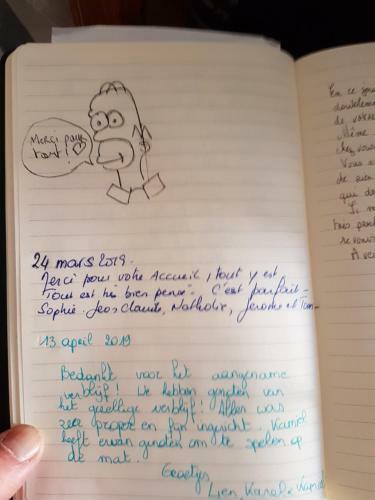 Merci pour
tout!
24 mars 2019.
Merci pour votre Accueil, tout y est
Tout est très bien pensé. C'est parfait.
Sophie. Jeos Claude, Nathalie, Jerome et Tom
13 april 2019
Bedankt voor het aangename
verblijf! We hebben genoten van
het gezellige verblijf! Alles was
zeer proper en fijn ingericht. Kamiel
heeft ervan genoten om te spelen op
de mat.
Groetjes
Lien Karel & Kamiel
En ce
de votre
Même
chez vous
Vous
de rien
qui
Si
très